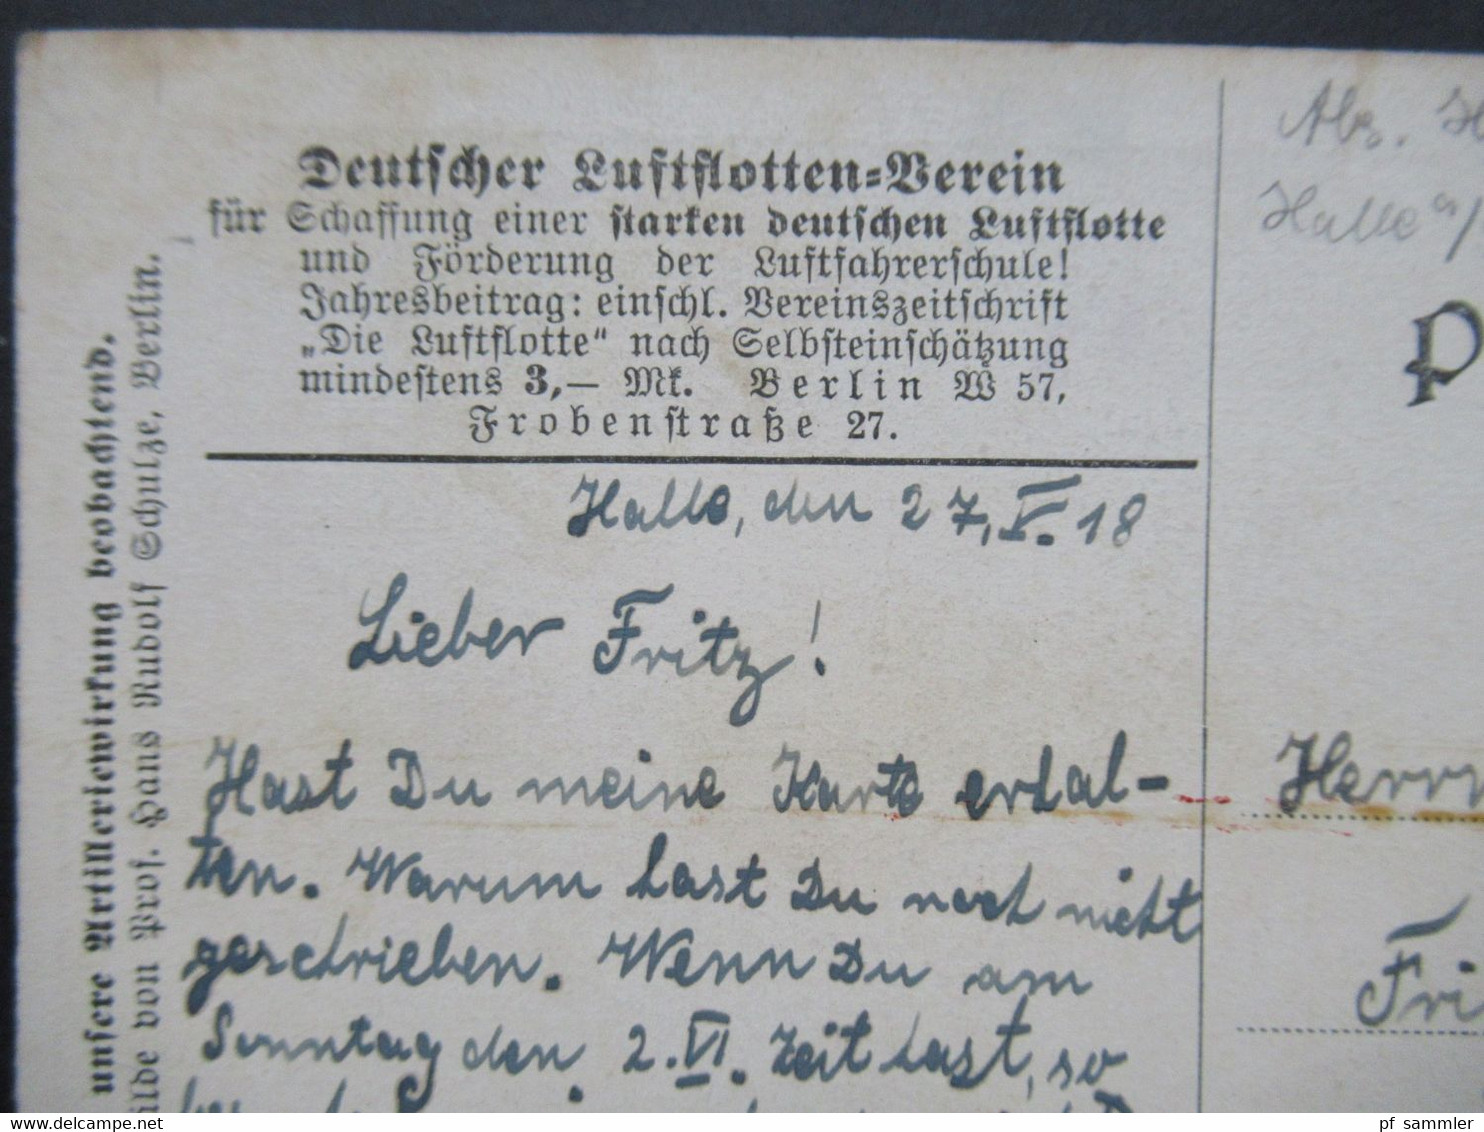 Deutscher Luftflotten-Verein
für Schaffung einer starken deutschen Luftflotte
und Förderung der Luftfahrerschule!
Jahresbeitrag: einschl. Vereinszeitschrift
„Die Luftflotte“ nach Selbsteinschätzung
mindestens 3,— Mk. Berlin W 57,
Frobenstraße 27.
unsere Artilleriewirkung beobachtend.
ilde von Prof. Hans Rudolf Schulze, Berlin.
Halle, den 27. V. 18
Lieber Fritz!
Hast Du meine Karte erhal-
ten. Warum hast Du noch nicht
geschrieben. Wenn Du am
Sonntag den 2. VI. Zeit hast, so
Abs. H
Halle a/
P
Herrn
Fri
pf_sammler